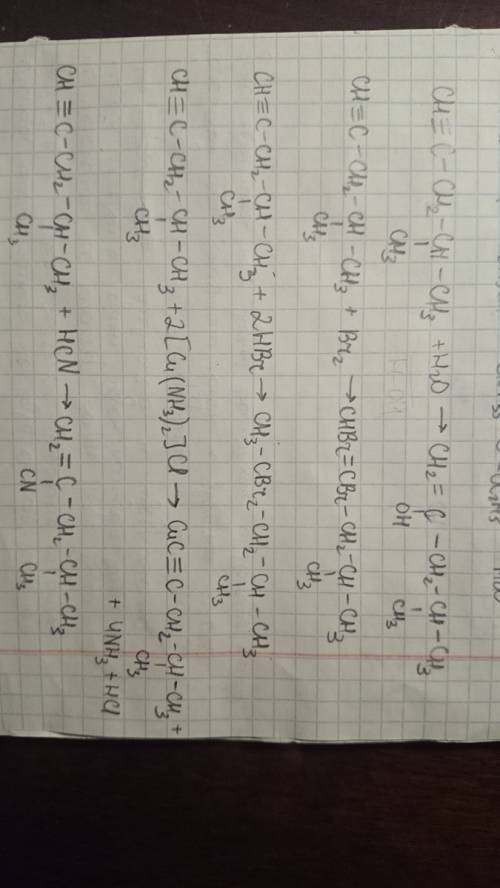 CH≡C-CH2-CH-CH3 + H2O → CH2=C-CH2-CH-CH3
CH3 OH CH3
CH≡C-CH2-CH-CH3 + Br2 → CHBr=CBr-CH2-CH-CH3
CH3 CH3
CH≡C-CH2-CH-CH3 + 2HBr → CH3-CBr2-CH2-CH-CH3
CH3 CH3
CH≡C-CH2-CH-CH3 + 2[Cu(NH3)2]Cl → CuC≡C-CH2-CH-CH3 +
CH3 CH3
+ 4NH3 + HCl
CH≡C-CH2-CH-CH3 + HCN → CH2=C-CH2-CH-CH3
CH3 CN CH3